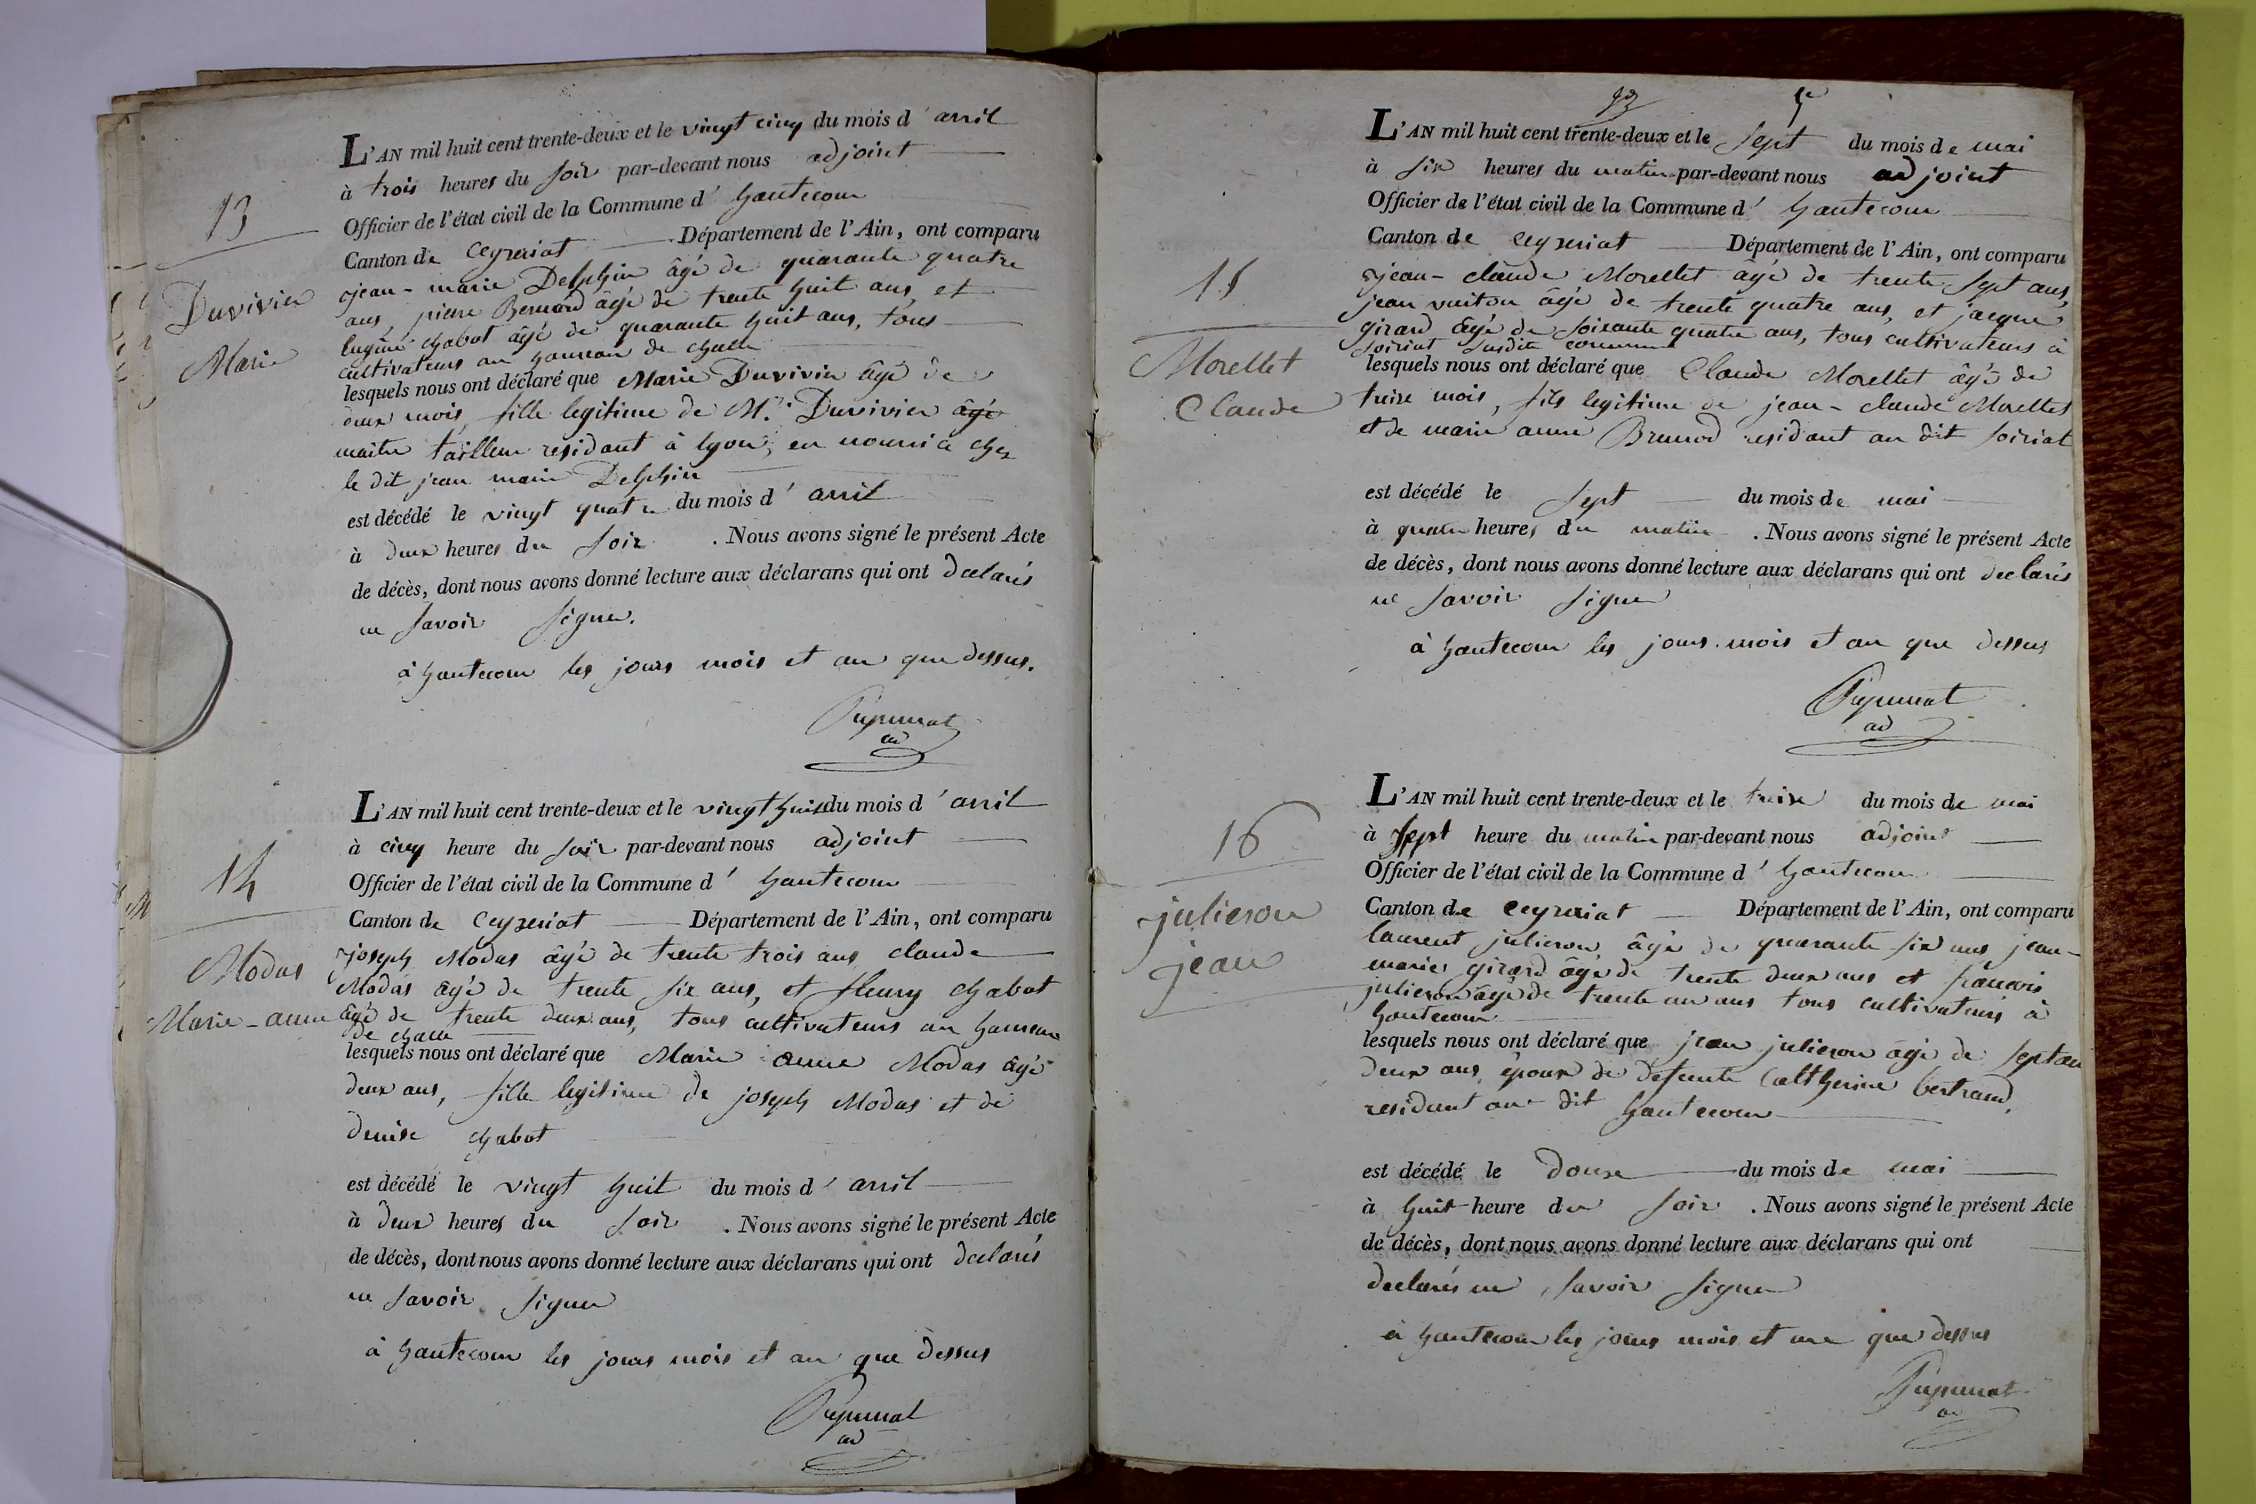 13
Duvivier
Marie
L'AN mil huit cent trente-deux et le vingt cinq du mois d'avril
à trois heures du soir par-devant nous adjoint
Officier de l'état civil de la Commune d'hautecour
Canton de Ceyzeriat Département de l'Ain, ont comparu
jean-marie Delphin âgé de quarante quatre
ans, pierre Bernard âgé de trente huit ans, et
chabot âgé de quarante huit ans, tous
cultivateurs au hameau de challe
lesquels nous ont déclaré que Marie Duvivier âgé de
deux mois, fille legitime de Mr. Duvivier âgé
maitre tailleur residant à lyon, en nourrice chez
le dit jean marie Delphin
est décédé le vingt quatre du mois d'avril
à deux heures du soir. Nous avons signé le présent Acte
de décès, dont nous avons donné lecture aux déclarans qui ont declarés
ne savoir signer.
à hautecour les jours mois et an que dessus.
Pupunat
ad
14
Modas
Marie-anne
L'AN mil huit cent trente-deux et le vingt huit du mois d'avril
à cinq heure du soir par-devant nous adjoint
Officier de l'état civil de la Commune d'hautecour
Canton de Ceyzeriat Département de l'Ain, ont comparu
joseph Modas âgé de trente trois ans claude
Modas âgé de trente six ans, et fleury chabot
âgé de trente deux ans, tous cultivateurs au hameau
de challe
lesquels nous ont déclaré que Marie anne Modas âgé
deux ans, fille legitime de joseph Modas et de
denise chabot
est décédé le vingt huit du mois d'avril
à deux heures du soir. Nous avons signé le présent Acte
de décès, dont nous avons donné lecture aux déclarans qui ont declarés
ne savoir signer
à hautecour les jours mois et an que dessus
Pupunat
ad
15
Morellet
Claude
L'AN mil huit cent trente-deux et le sept du mois de mai
à six heures du matin par-devant nous adjoint
Officier de l'état civil de la Commune d'hautecour
Canton de Ceyzeriat Département de l'Ain, ont comparu
jean-claude Morellet âgé de trente sept ans,
jean vuiton âgé de trente quatre ans, et jacque
girard âgé de soixante quatre ans, tous cultivateurs à
soiriat susdite commune
lesquels nous ont déclaré que Claude Morellet âgé de
treize mois, fils legitime de jean-claude Morellet
et de marie anne Brunod residant au dit soiriat
est décédé le sept du mois de mai
à quatre heures du matin. Nous avons signé le présent Acte
de décès, dont nous avons donné lecture aux déclarans qui ont declarés
ne savoir signer
à hautecour les jours mois et an que dessus
Pupunat
ad
16
julieron
jean
L'AN mil huit cent trente-deux et le treize du mois de mai
à sept heure du matin par-devant nous adjoint
Officier de l'état civil de la Commune d'hautecour
Canton de Ceyzeriat Département de l'Ain, ont comparu
laurent julieron âgé de quarante six ans jean-
marie girard âgé de trente deux ans et francois
julieron âgé de trente un ans tous cultivateurs à
hautecour
lesquels nous ont déclaré que jean julieron âgé de septante
deux ans, époux de defeunte Catherine bertrand,
residant au dit hautecour
est décédé le douze du mois de mai
à huit heure du soir. Nous avons signé le présent Acte
de décès, dont nous avons donné lecture aux déclarans qui ont
declarés ne savoir signer
à hautecour les jours mois et an que dessus
Pupunat
ad